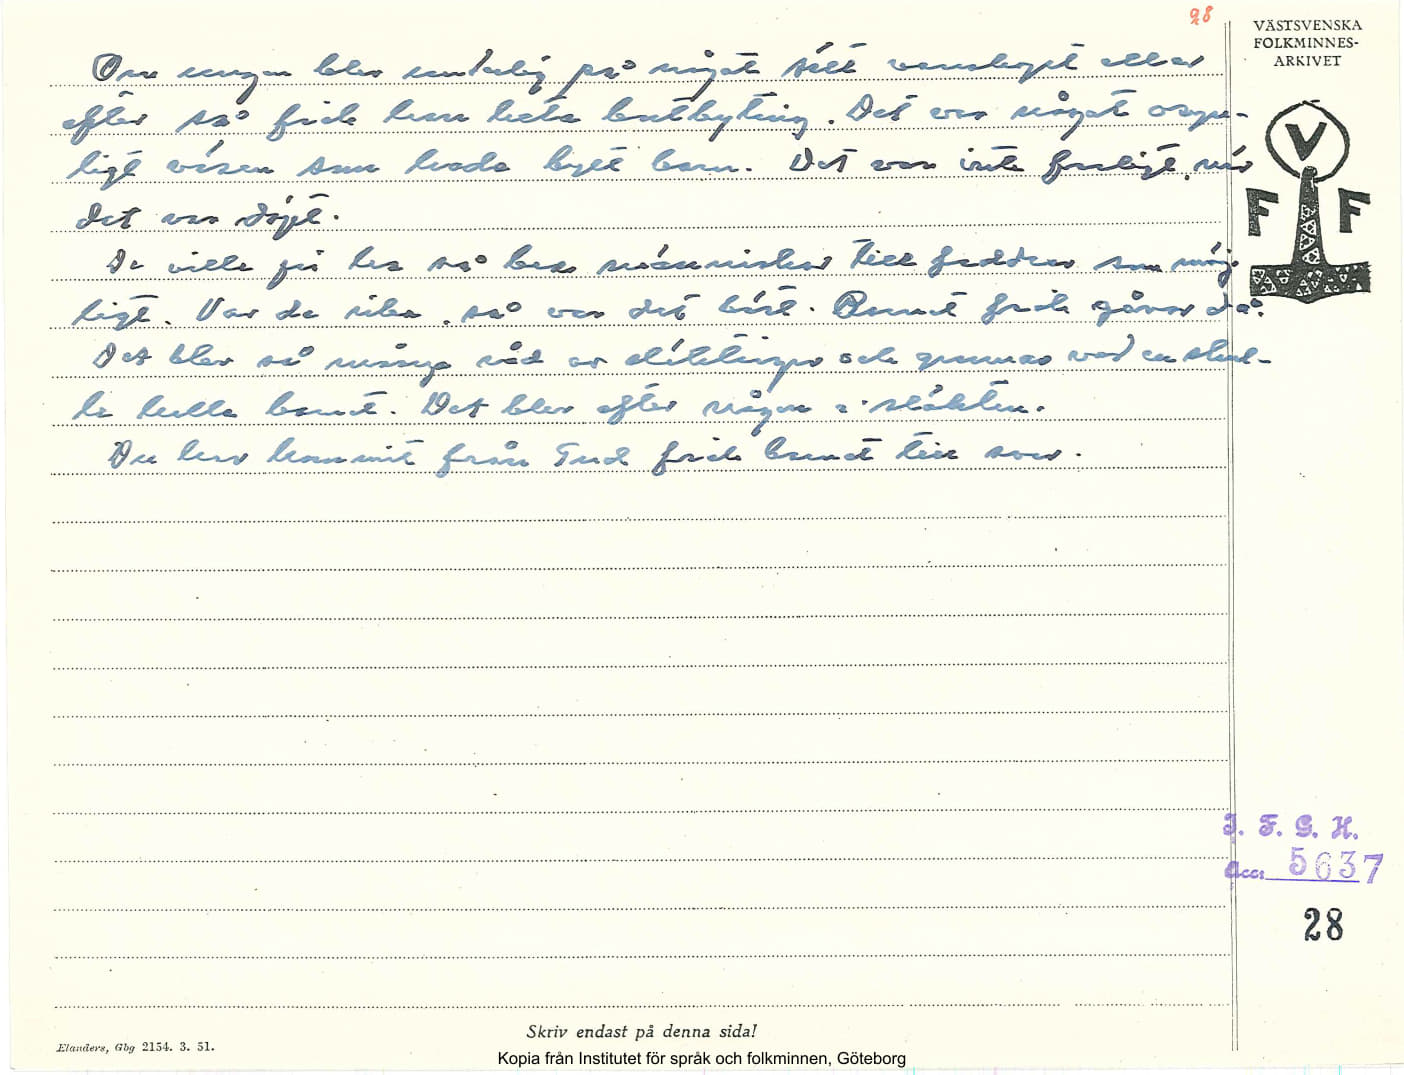 28
VÄSTSVENSKA
FOLKMINNES-
ARKIVET
Om ungen blev underlig på något sätt vanskapt eller
efter så fick han heta bortbyting. Det var något osyn-
ligt väsen som hade bytt barn. Det var inte farligt när
det var döpt.
De ville ju ha så bra människor till faddrar som möj-
ligt. Var de rika, så var det bäst. Barnet fick gåvor då.
Det blev så många råd av släktingar och grannar vad en skul-
le kalla barnet. Det blev efter någon i släkten.
Du har kommit från Gud fick barnet till svar.
V
F F
I. F. G. H.
Acc: 5637
28
Skriv endast på denna sida!
Elanders, Gbg 2154. 3. 51.
Kopia från Institutet för språk och folkminnen, Göteborg